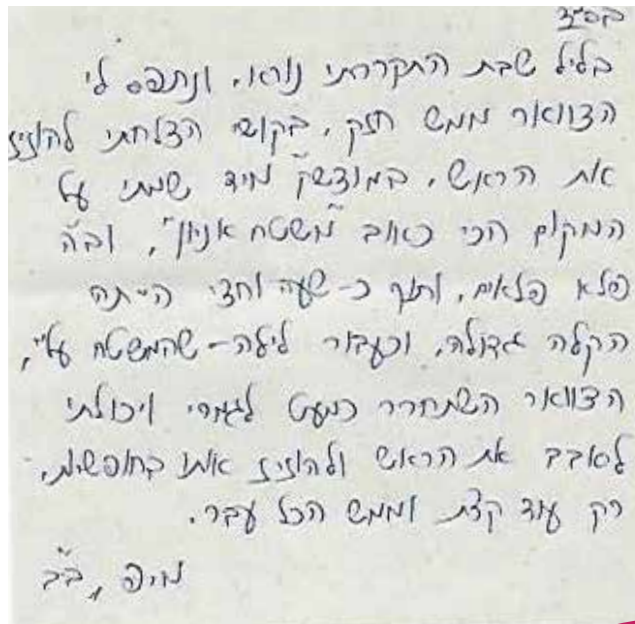 בס״ד
בליל שבת התקררתי נורא, ונתפס לי
הצוואר ממש חזק, בקושי הצלחתי להוזיז
את הראש, במוצש״ק מיד שמתי על
המקום הכי כאוב "משטח אניון", וב״ה
פלא פלאים, ותוך כ-שעה וחצי הייתה
הקלה גדולה, וכעבור לילה - שהמשטח עלי,
הצוואר השתחרר כמעט לגמרי ויכולתי
לסובב את הראש ולהוזיז אותו בחופשיות,
רק עוד קצת וממש הכל עבר.
ב״ב